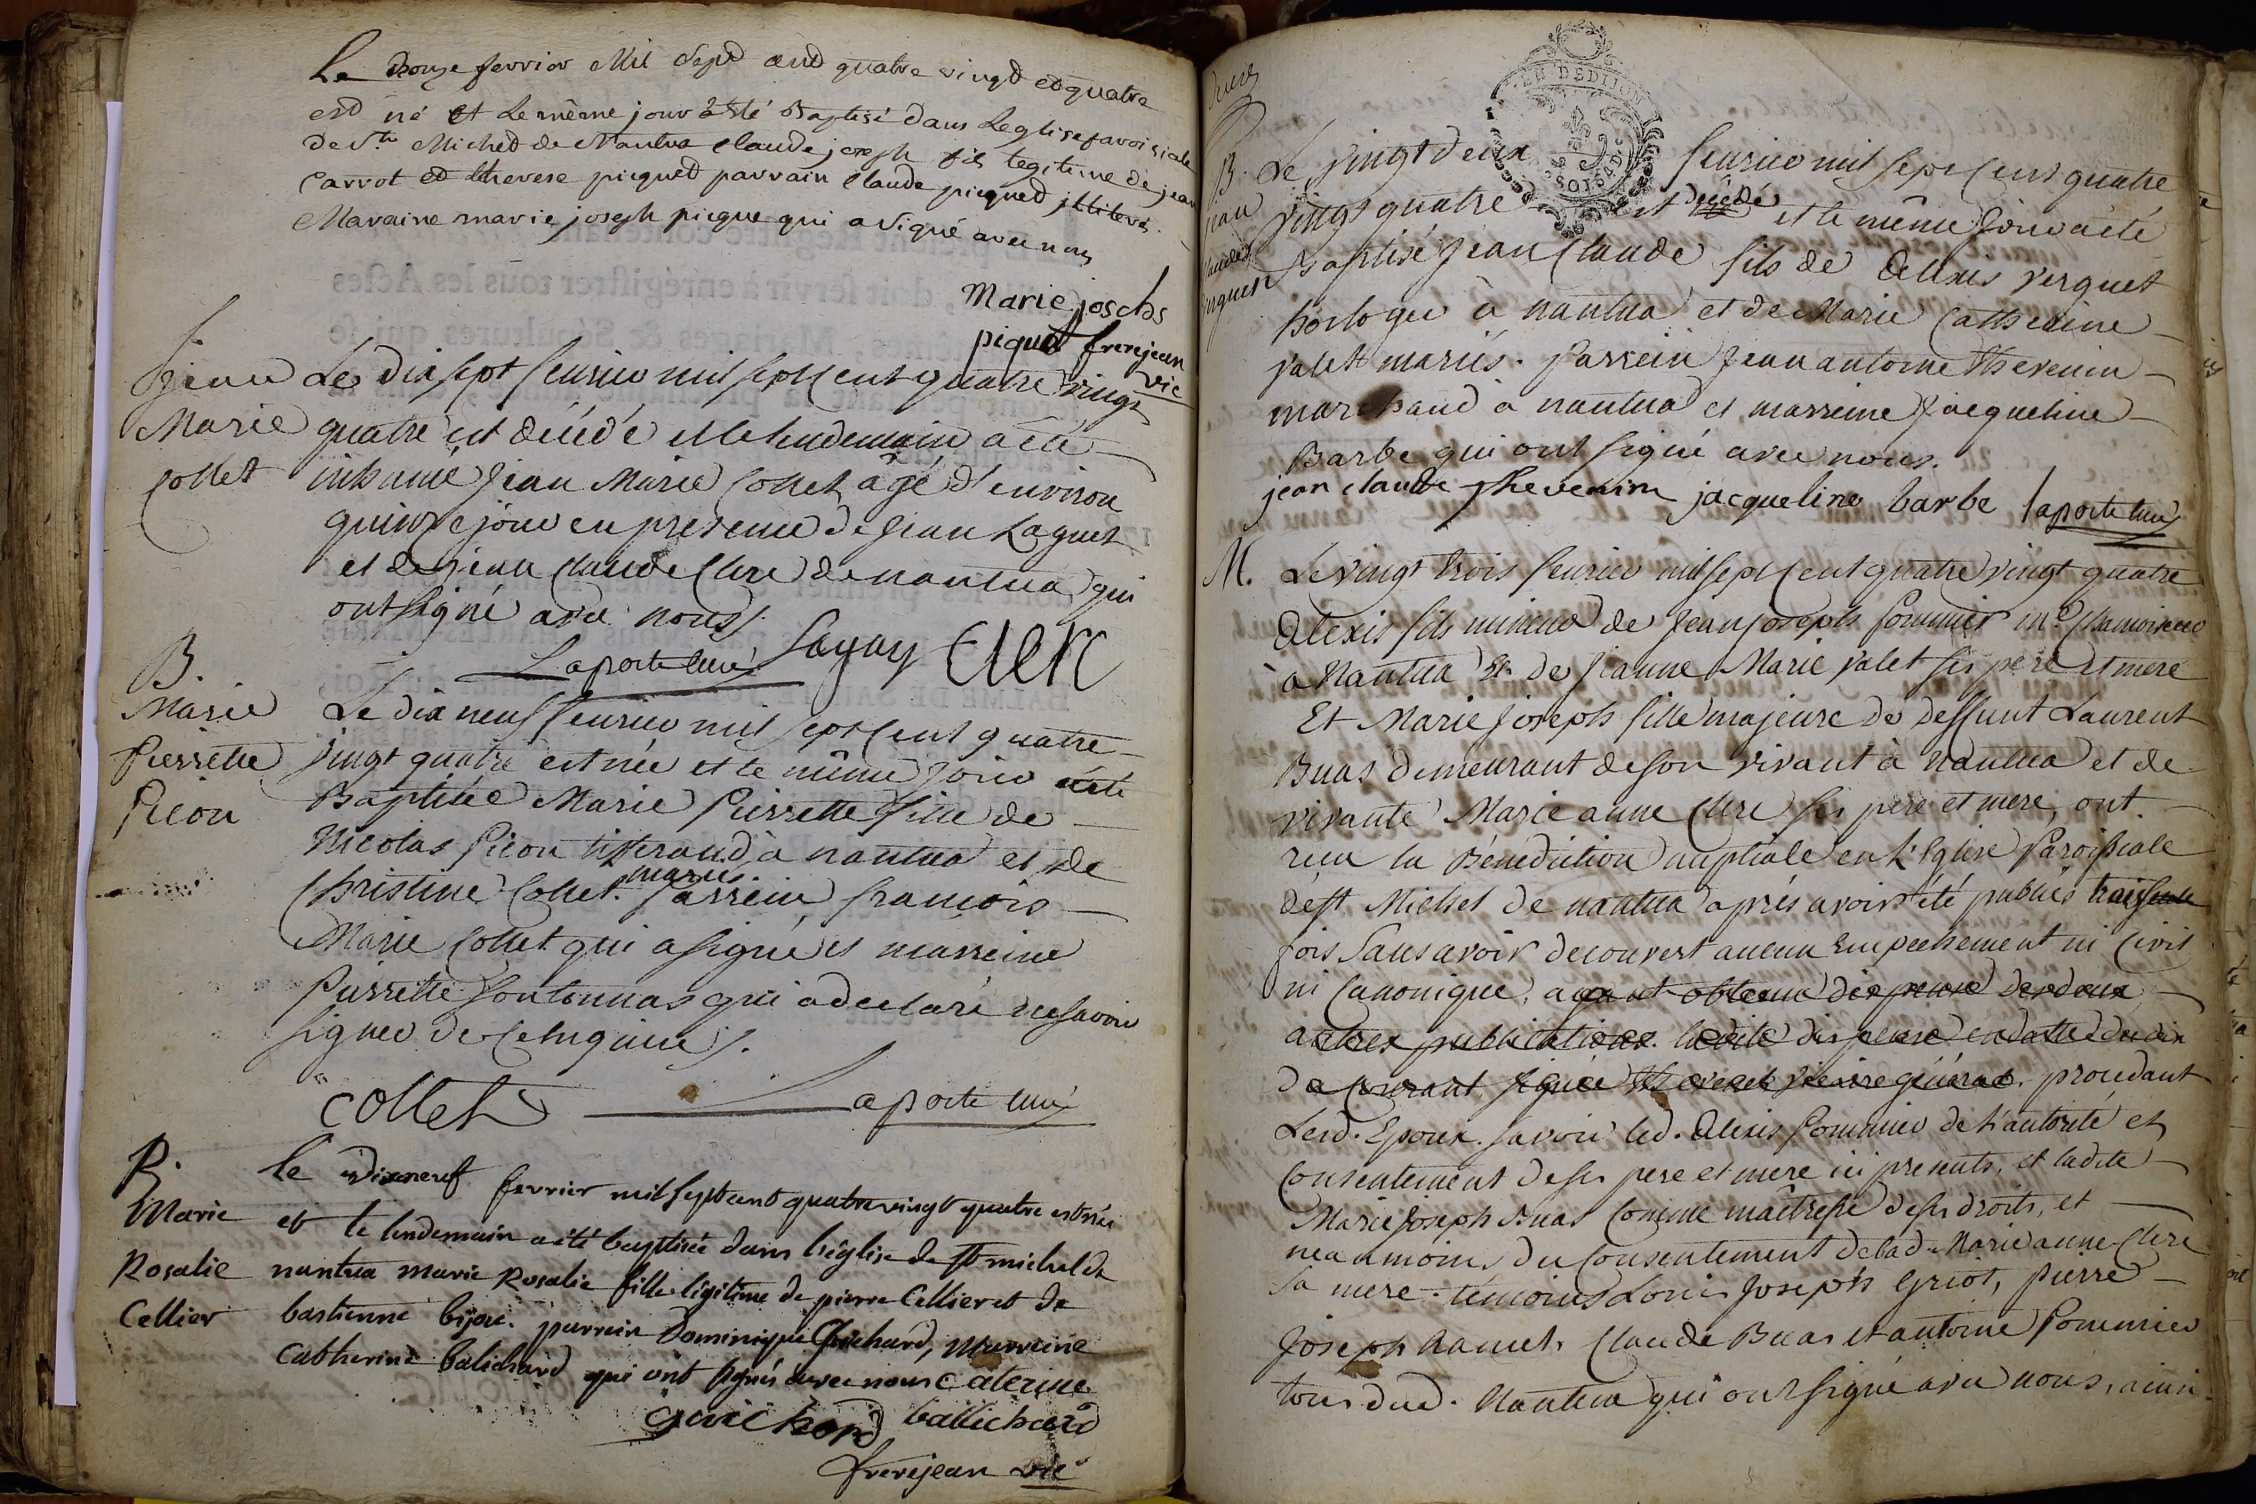 Le Douze fevrier Mil Sept cend quatre vingd et quatre
est né et Le même jour à été Baptisé dans Leglise paroisiale
de St. Michel de Nantua Claude joseph fils legitime de jean
Carrot et Therese picqued parrain Claude picqued illiteré.
Maraine marie joseph picque qui a signé avec nous
Marie joschs
piquet frerejean
vic
S.
Jean
Marie
Collet
Le Dix sept fevrier mil sept cent quatre vingt
quatre est décédé et le lendemain a été
inhumé Jean Marie Collet âgé d'environ
quinze jour en presence de Jean Laguet
et de jean Claude Clere de nantua qui
ont signé avec nous.
Laporte curé Laguy Clerc
B.
Marie
Pierrette
Picon
Le dix neuf fevrier mil sept cent quatre
vingt quatre est née et le même jour a été
Baptisée Marie Pierrette fille de
Nicolas Picon tisserand à nantua et de
Christine Collet mariés. Parrein françois
Marie Collet qui a signé et marreine
Pierrette Fontonnas qui a declaré ne savoir
signer de ce enquise.
Collet Laporte curé
B.
Marie
Rosalie
Cellier
le dixneuf fevrier mil sept cent quatre vingt quatre est née
et le lendemain a été baptisée dans l'église de St michel de
nantua marie Rosalie fille légitime de pierre Cellier et de
bastienne bijou. parrein Dominique Guichard, Marreine
Catherine balichard qui ont signés avec nous Caterine
guichard ballichard
frerejean vic
deux
GEN DE DIJON
B.
jean
Claude
Verguet
Le vingt deux fevrier mil sept cent quatre
vingt quatre est décédé et le même jour a été
Baptisé Jean Claude fils de Alexis Verguet
horloger à nantua et de Marie Catherine
Valet mariés. Parrein Jean antoine Thevenin
marchand à nantua et marreine Jacqueline
Barbe qui ont signé avec nous.
jean claude thevenin jacqueline barbe Laporte curé
M. Le vingt trois fevrier mil sept cent quatre vingt quatre
Alexis fils mineur de Jean joseph Pommier md. Chamoiseur
à Nantua Et de Jeanne Marie Valet ses pere et mere
Et Marie Joseph fille majeure de deffunt Laurent
Buas demeurant de son vivant à Nantua et de
vivante Marie anne Clere ses pere et mere, ont
reçu la Bénédiction nuptiale en l'Eglise Paroissiale
de St Michel de nantua après avoir été publiés trois
fois Sans avoir decouvert aucun Empechement ni Civil
ni Canonique, ayant obtenu dispense des deux
autres publications. ladite dispense en datte du dix
du Courant signée Thevenet vicaire général. procedant
Lesd. Epoux. savoir led. Alexis Pommier de l'autorité et
Consentement de ses pere et mere ici presents, et ladite
Marie Joseph Buas Comme maîtresse de ses droits, et
néanmoins du Consentement de lad. Marie anne Clere
sa mere. témoins Louis Joseph Griot, Pierre
Joseph hamet, Claude Buas et antoine Pommier
tous dud. Nantua qui ont signé avec nous, ainsi